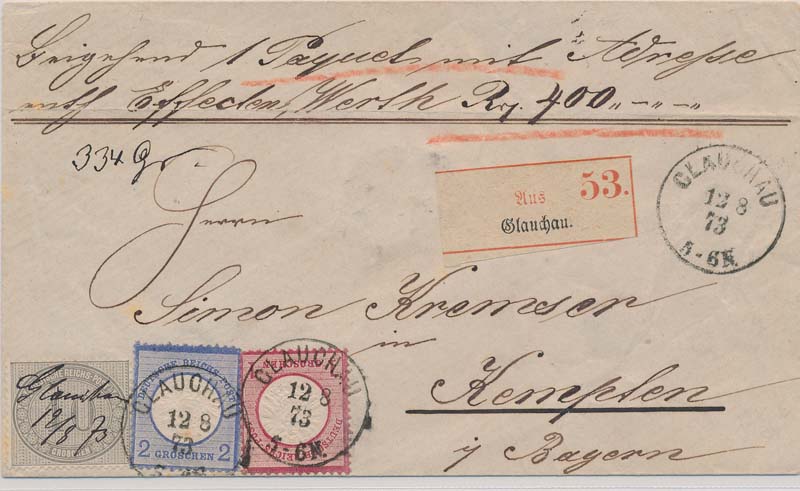 Beigehend 1 Paquet mit Adresse
enth Effecten, Werth Rq. 400
334 Gr
53.
Aus
Glauchau.
GLAUCHAU
12 8
73
5-6N.
Herrn
Simon Kremser
in
Kempten
i/ Bayern
Glauchau
12/8 73
GROSCHEN
DEUTSCHE REICHS-POST
2 GROSCHEN 2
GLAUCHAU
12 8
73
GLAUCHAU
12 8
73
5-6N.